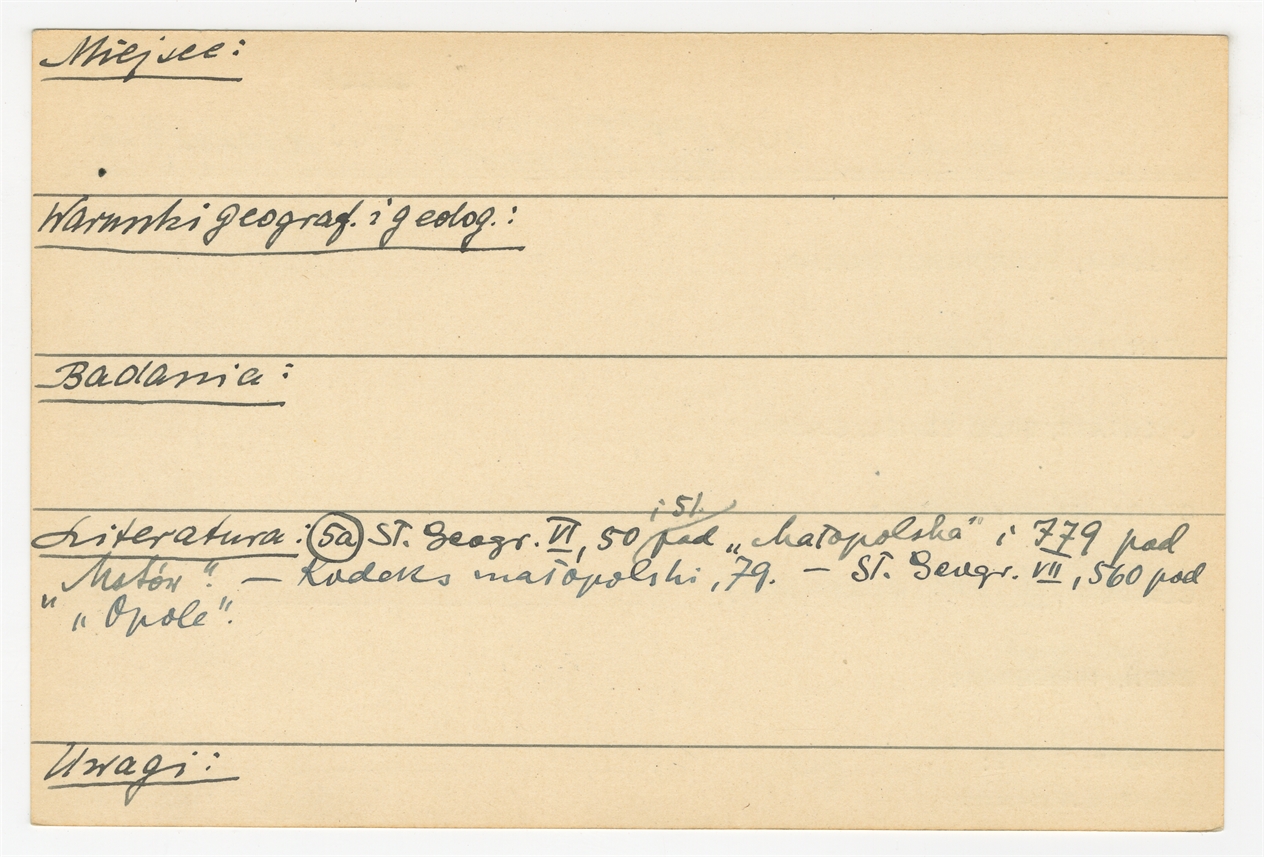 Miejsce:
Warunki geograf. i geolog.:
Badania:
i 51.
Literatura: 5a Sł. Geogr. VI, 50 pod „Małopolska" i 779 pod
„Mstów". — Kodeks małopolski, 79. — Sł. Geogr. VII, 560 pod
„Opole".
Uwagi: